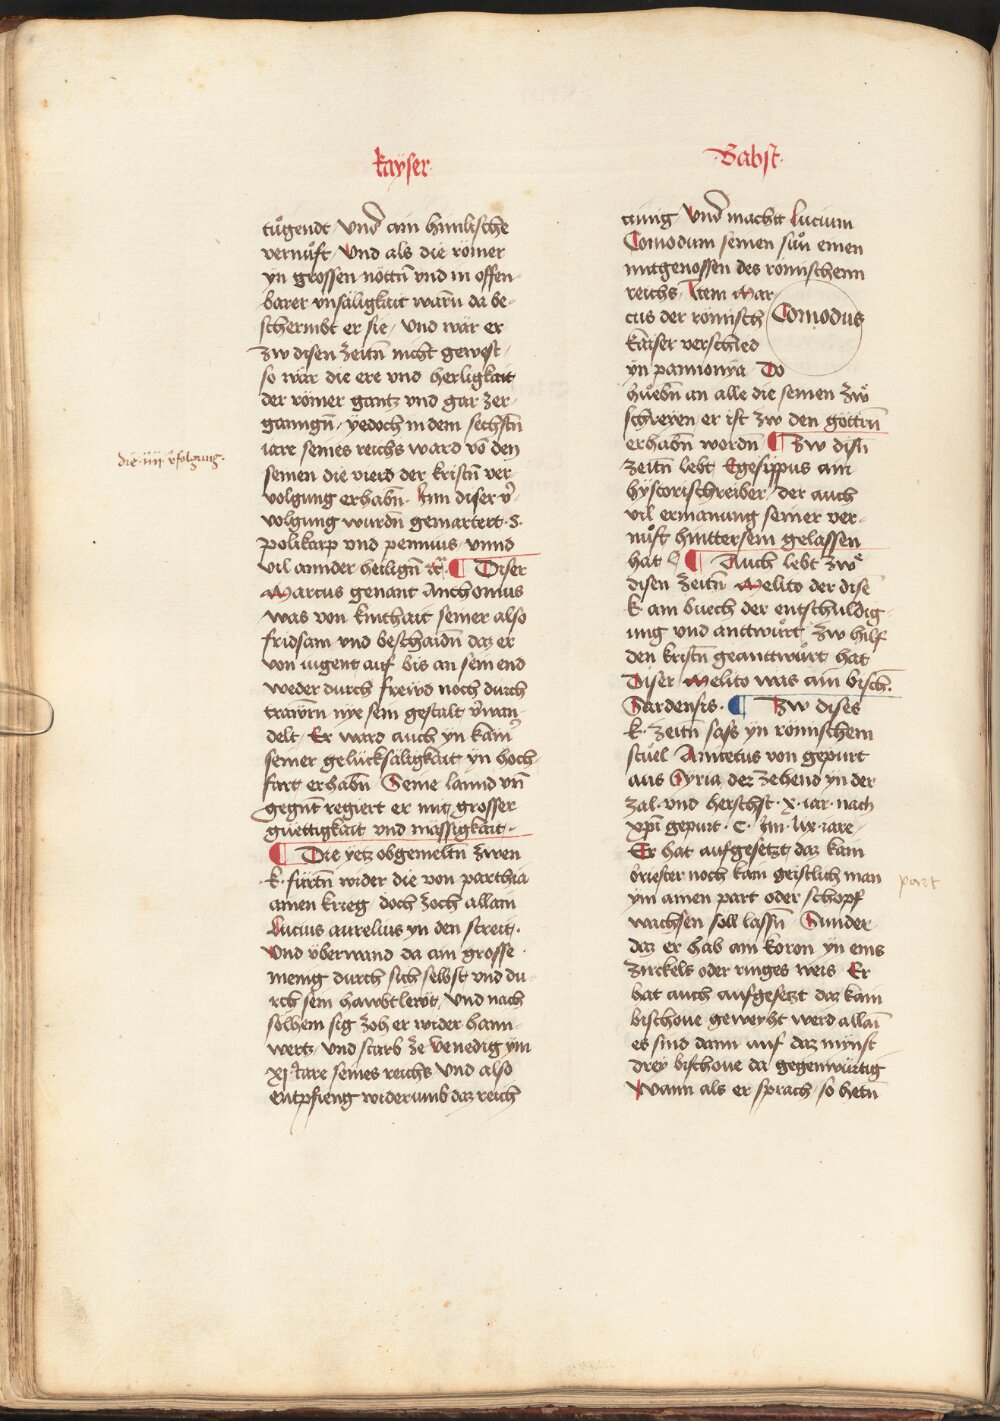 kayser
tuͦgendt Und ain himlische
vernuͦft Und als die römer
yn grossen nöttn̄ vnd in offen
barer vnsäligkait warn̄ da be-
schermbt er sie Und wär er
zw disen zeitn̄ nicht gewest
so wär die ere vnd herligkait
der römer gantz vnd gar zer-
ganngn̄ yedoch in dem sechstn̄
iare seines reichs ward vō den
seinen die vierd der kristn̄ ver
volgung erhabn̄ Inn diser v̄-
volgung wurdn̄ gemartert S.
polikarp vnd vnnd
vil annder heilign̄ ꝛc̄ ¶ Diser
Marcus genant Anthonius
was von kinthait seiner also
fridsam vnd beschaidn̄ daz er
von iugent auf bis an sein end
weder durch frewd noch durch
trawrn nye sein gestalt v̄wan-
delt Er ward auch yn kain̄
seiner gelücksäligkait yn hoch-
fart erhabn̄ Seine lannd vn̄
gegn̄t regiert er mit grosser
guettigkait vnd mässigkait
die iiii v̄folgung
¶ Die yetz obgemeltn̄ zwen
k. fürtn̄ wider die von parthia
ainen krieg doch zoch allain
Lucius aurelius yn den streit
Und vberwand da ain grosse
menig durch sich selbst vnd du-
rch sein hawbtleẅt Und nach
solhem sig zoh er wider haim-
wertz vnd starb ze Venedig ym
xj Jare seines reichs Und also
entpfieng widerumb daz reich
Babst
ainig Und macht Lucium
Comodum seinen suͦn einen
mitgenossen des römischenn
reichs Item Mar-
cus der römisch
kaiser verschied
yn pannonya Do
Comodus
huͤebn̄ an alle die seinen zw
schreyen er ist zw den göttrn̄
erhabn̄ wordn̄ ¶ Zw disn̄
zeitn̄ lebt Egesippus ain
hystorischreiber der auch
vil ermanung seiner ver-
nuͦft hinttersein gelassen
hat ¶ Auch lebt zw
disen zeitn̄ Melito der disē
k. ain buech der entschuldig-
ung vnd anttwuͦrt zw hilf
den kristn̄ geanttwuͦrt hat
Diser Melito was ain bisch.
Sardensis. ¶ Zw dises
k. zeitn̄ sass yn römischem
stuͤel Anicetus von gepurt
aus Syria der zehend yn der
zal vnd herscht x iar nach
xp̄i gepurt C. lix iare
Er hat aufgesetzt daz kain
briester noch kain geistlich man
ym ainen part oder schopf
part
wachsen soll lassn̄ Sunder
daz er hab ain koron yn eins
zirckels oder ringes weis Er
hat auch aufgesetzt daz kain
bischoue geweyht werd allain̄
es sind dann auf daz mynst
drey bischoue da gegenwürtig
Wann als er sprach so hetn̄